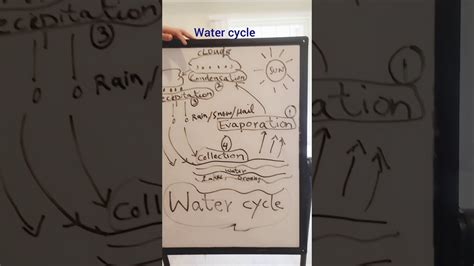 Water cycle
clouds
SUN
Condensation
2
ecipitation
3
1
Rain/Snow/Hail
Evaporation
4
Collection
Water
Lakes, Oceans
Water cycle
ecipitation
3
Rain/
1